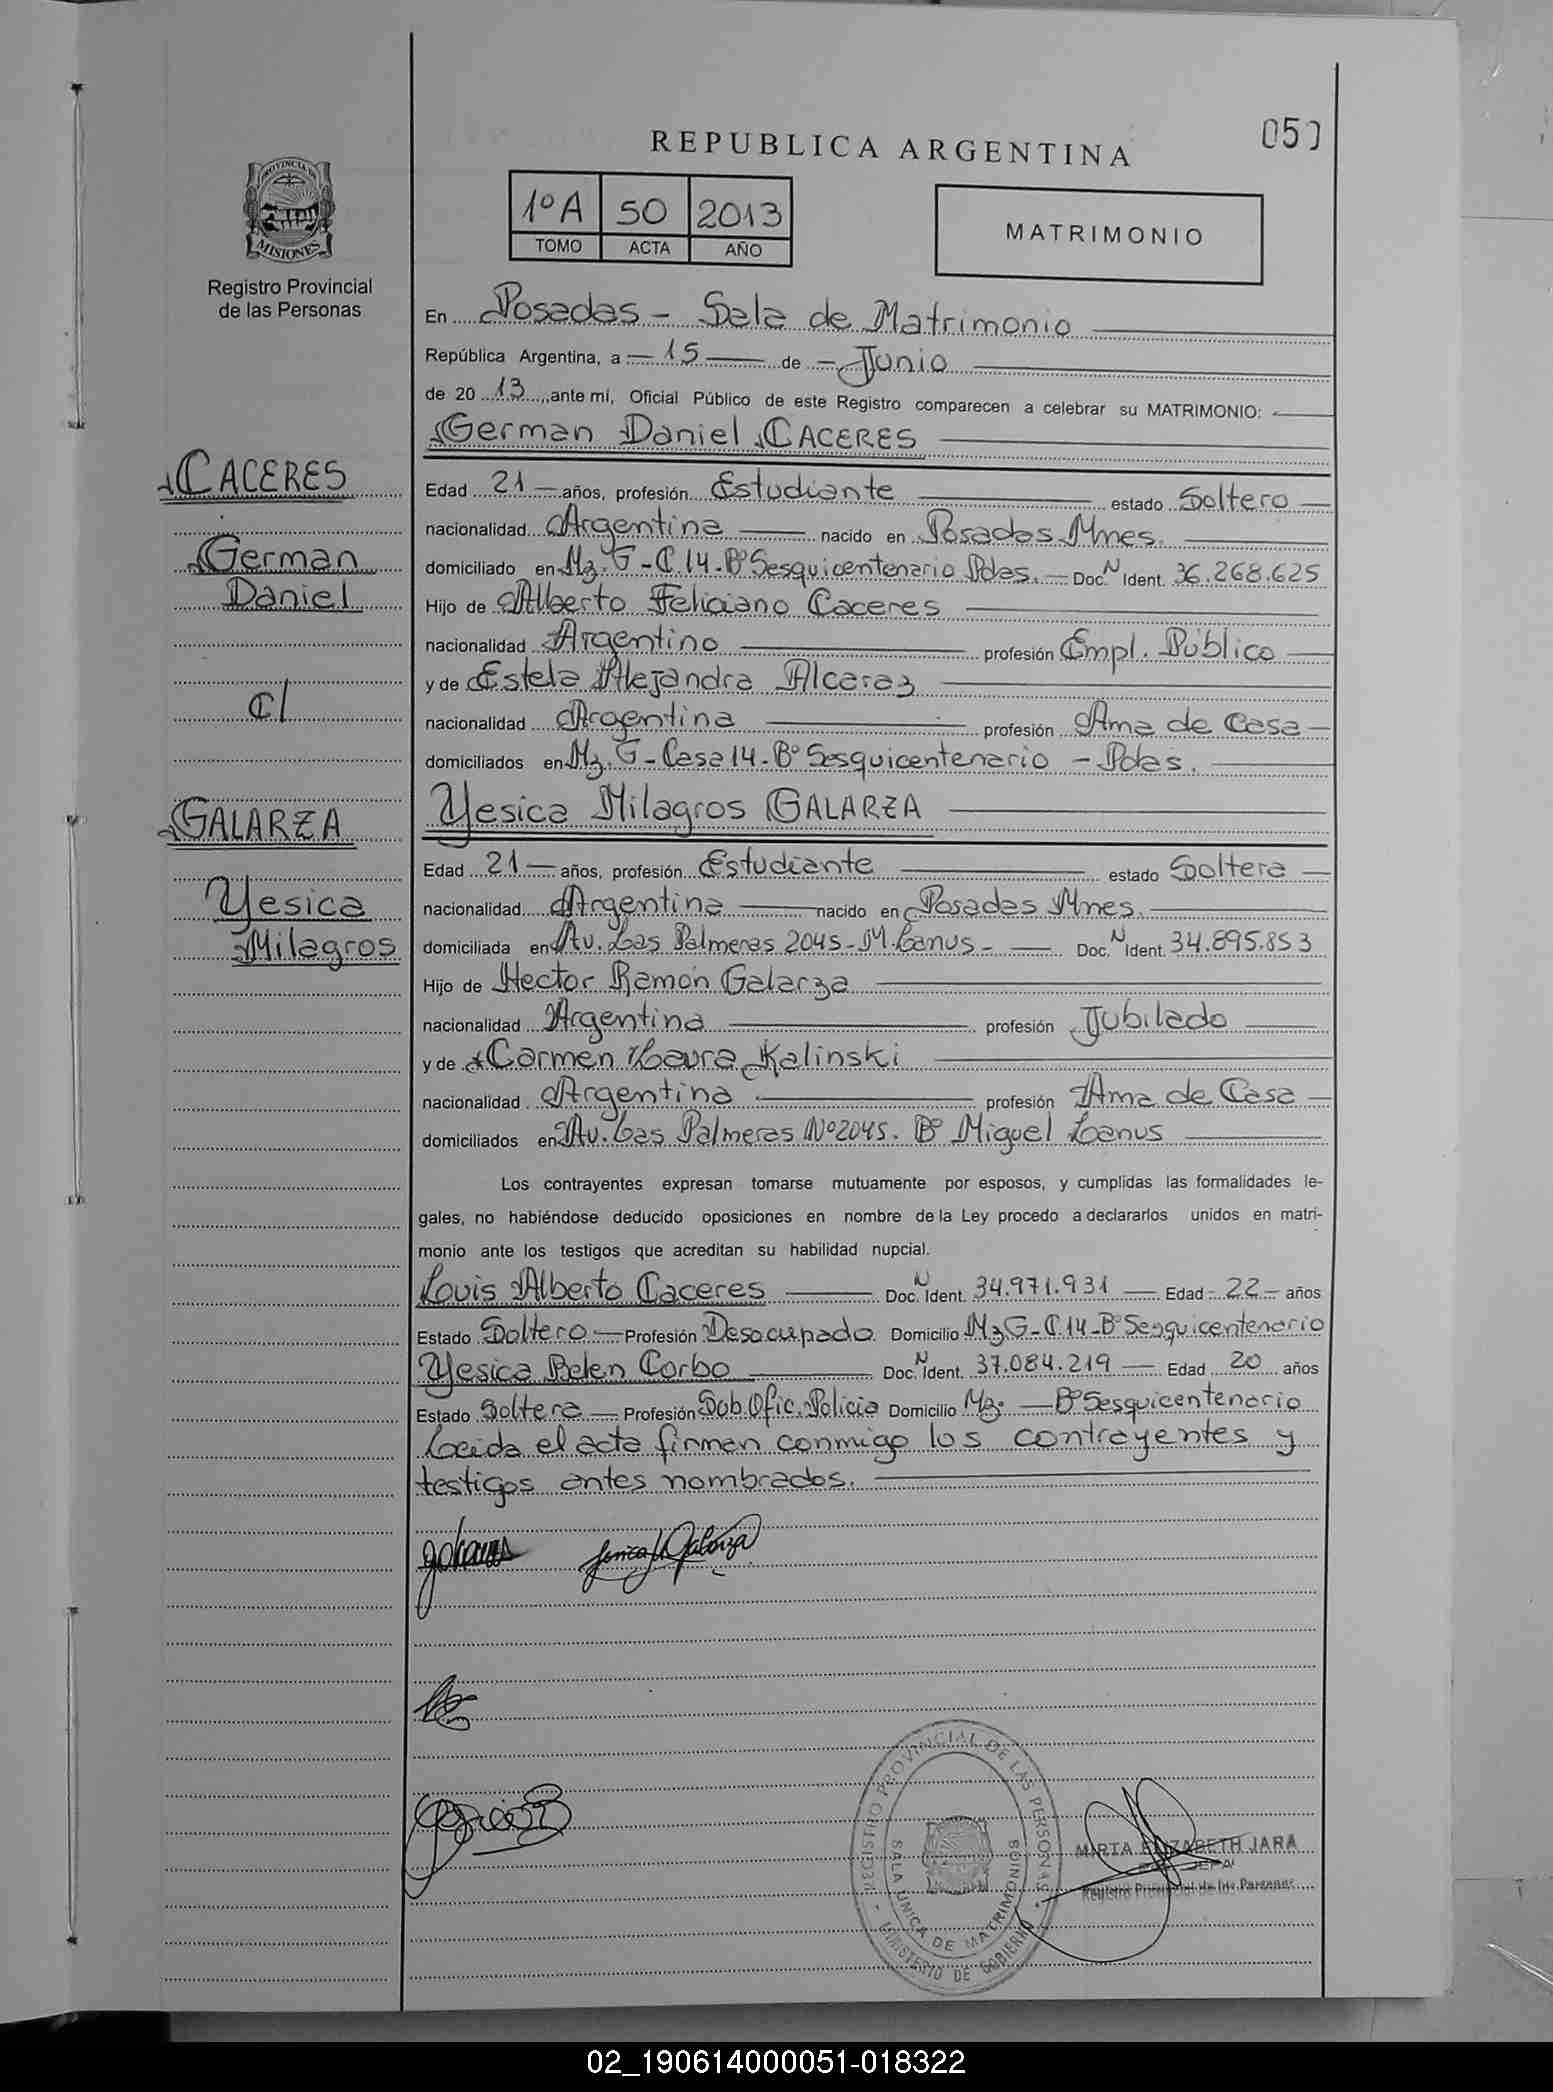 REPUBLICA ARGENTINA
050
PROVINCIA DE
MISIONES
Registro Provincial
de las Personas
1º A 50 2013
TOMO ACTA AÑO
MATRIMONIO
En Posadas - Sala de Matrimonio
República Argentina, a 15 de Junio
de 20 13, ante mí, Oficial Público de este Registro comparecen a celebrar su MATRIMONIO:
German Daniel CACERES
CACERES
German
Daniel
c/
GALARZA
Yesica
Milagros
Edad 21 años, profesión Estudiante estado Soltero
nacionalidad Argentina nacido en Posadas Mnes.
domiciliado en Mz. G - C. 14 - Bº Sesquicentenario Pdas. Doc. N Ident. 36.268.625
Hijo de Alberto Feliciano Caceres
nacionalidad Argentino profesión Empl. Público
y de Estela Alejandra Alcaraz
nacionalidad Argentina profesión Ama de Casa
domiciliados en Mz. G - Casa 14 - Bº Sesquicentenario - Pdas.
Yesica Milagros GALARZA
Edad 21 años, profesión Estudiante estado Soltera
nacionalidad Argentina nacido en Posadas Mnes.
domiciliada en Av. Las Palmeras 2045 - M. Lanus - Doc. N Ident. 34.895.853
Hijo de Hector Ramón Galarza
nacionalidad Argentina profesión Jubilado
y de Carmen Laura Kalinski
nacionalidad Argentina profesión Ama de Casa
domiciliados en Av. Las Palmeras Nº 2045. Bº Miguel Lanus
Los contrayentes expresan tomarse mutuamente por esposos, y cumplidas las formalidades le-
gales, no habiéndose deducido oposiciones en nombre de la Ley procedo a declararlos unidos en matri-
monio ante los testigos que acreditan su habilidad nupcial.
Louis Alberto Caceres Doc. N Ident. 34.971.931 Edad 22 años
Estado Soltero Profesión Desocupado Domicilio Mz G - C. 14 - Bº Sesquicentenario
Yesica Belen Corbo Doc. N Ident. 37.084.219 Edad 20 años
Estado Soltera Profesión Sub. Ofic. Policia Domicilio Mz. Bº Sesquicentenario
Leida el acta firman conmigo los contrayentes y
testigos antes nombrados.
REGISTRO PROVINCIAL DE LAS PERSONAS
SALA UNICA DE MATRIMONIOS
MINISTERIO DE GOBIERNO
MIRTA ELIZABETH JARA
JEFA
Registro Provincial de las Personas
02_190614000051-018322